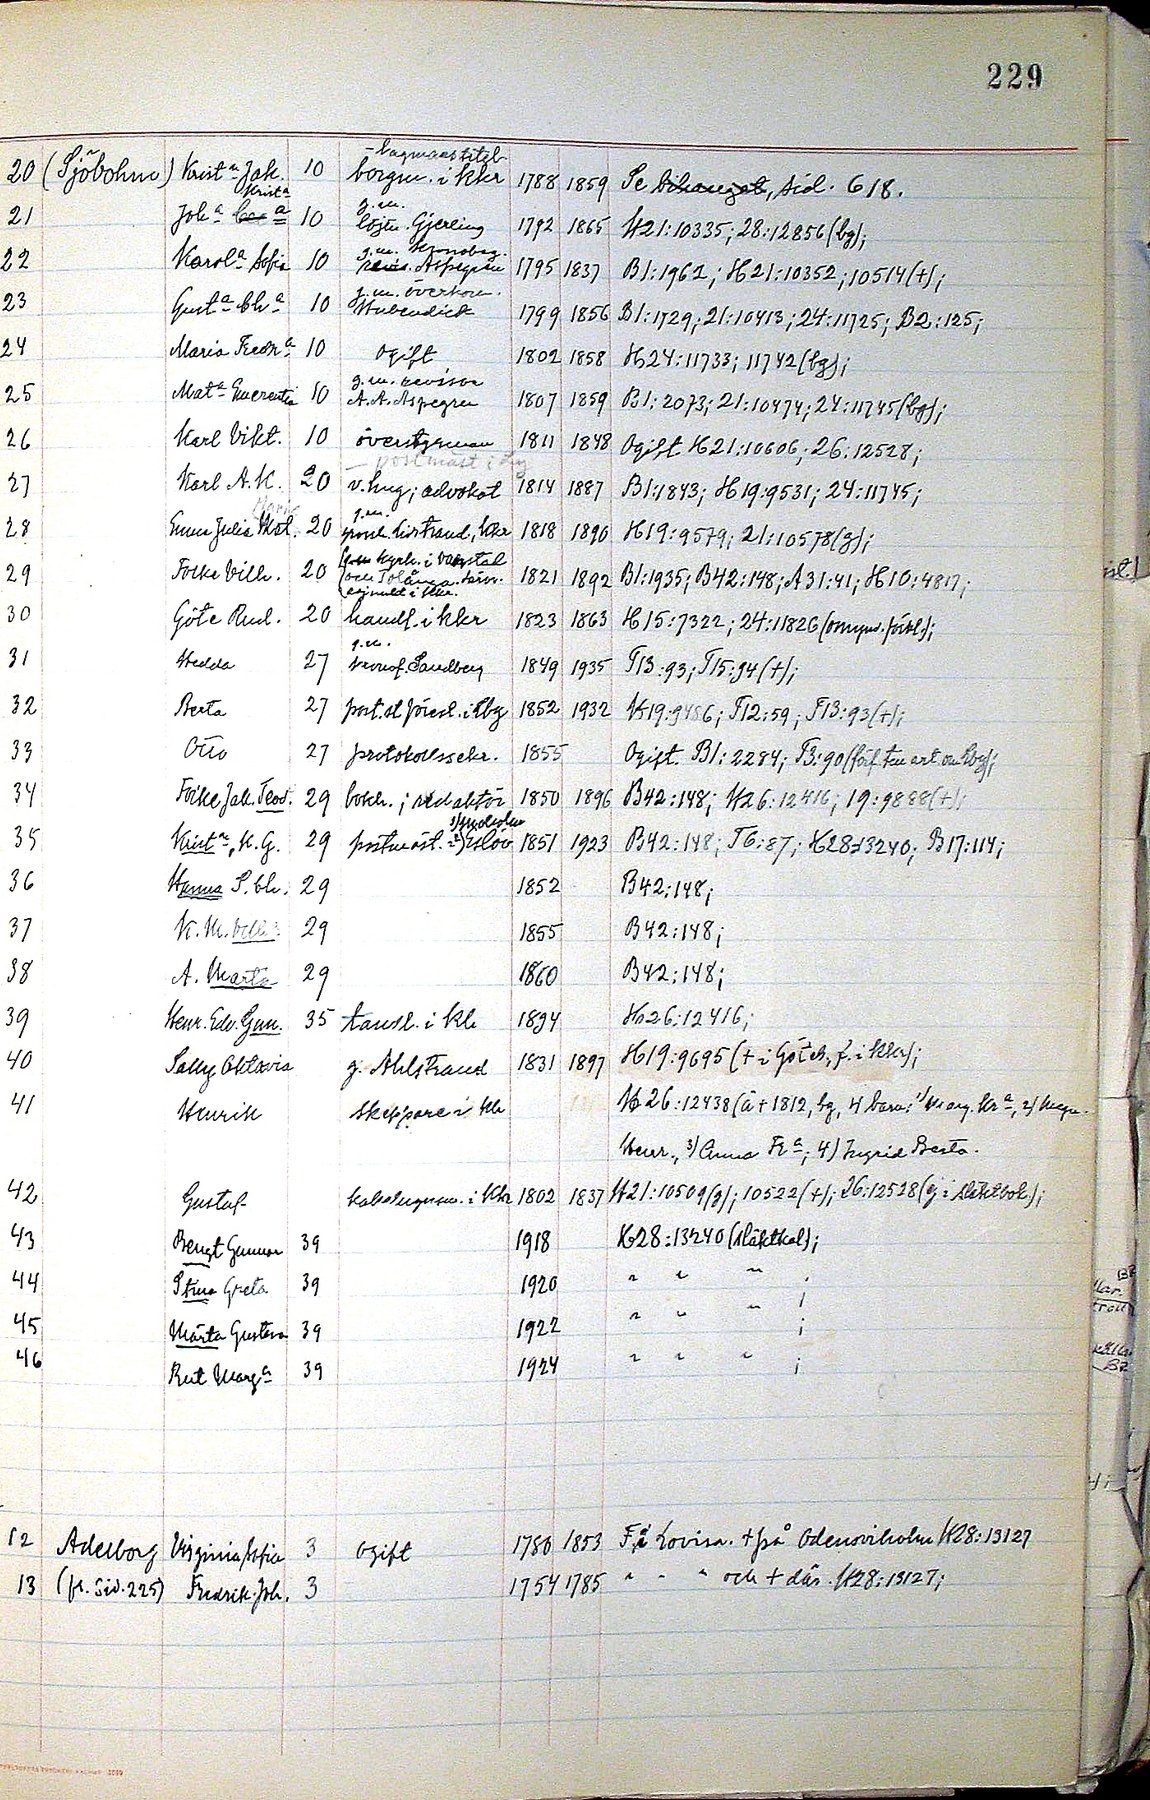 229
20 (Sjöbohm) Krist.n Jak. 10 borgm. i Kkr 1788 1859 Se bihanget, sid. 618.
21 Joh.a Krist.a 10 g.m. löjtn. Gjerling 1792 1865 H21:10335; 28:12856 (bg);
22 Karol.a Sofia 10 g.m. Aspegren 1795 1837 B1:1962; H21:10352; 10514 (+);
23 Gust.a Ch.a 10 g.m. Stubendick 1799 1856 B1:1729; 21:10413; 24:11725; B2:125;
24 Maria Fredr.a 10 ogift 1802 1858 H24:11733; 11742 (bg);
25 Mat.a Emerentia 10 g.m. revisor A.A. Aspegren 1807 1859 B1:2073; 21:10474; 24:11745 (bg);
26 Karl Vikt. 10 överstjman 1811 1848 Ogift H21:10606; 26:12528;
27 Karl A. K. 20 v. hng; advokat 1814 1887 B1:1843; H19:9531; 24:11745;
28 Emma Julia 20 g.m. 1818 1890 H19:9579; 21:10578 (g);
29 Folke Vilh. 20 kyrkh. i 1821 1892 B1:1935; B42:148; A31:41; H10:4817;
30 Göte Rud. 20 handl. i Kkr 1823 1863 H15:7322; 24:11826 (omynd. förkl.);
31 Hedda 27 g.m. kronof. Sandberg 1849 1935 T13:93; T15:94 (+);
32 Berta 27 post.st.förest. i Rbg 1852 1932 K19:9486; T12:59; T13:93 (+);
33 Otto 27 protokollssekr. 1855 Ogift. B1:2284; T3:90
34 Folke Jak. Teod. 29 bokh.; redaktör 1850 1896 B42:148; H26:12416; 19:9888 (+);
35 Krist.n, K. G. 29 postmäst. 2) Eslöv 1851 1923 B42:148; T6:87; H28:13240; B17:114;
36 Hanna S. Ch. 29 1852 B42:148;
37 K. M. Vilh. 29 1855 B42:148;
38 A. Marta 29 1860 B42:148;
39 Henr. Edv. Gun. 35 tandl. i Kh 1894 H26:12416;
40 Sally Oktavia g. Ahlstrand 1831 1897 H19:9695 (+ i Göteb., f. i Kkr);
41 Henrik skeppare i Kh H26:12438 (ä + 1812, bg, 4 barn: 1) Marg. Kr.a, 2) Magn.
Henr., 3) Anna Fr.a; 4) Ingrid Berta.
42 Gustaf i Kkr 1802 1837 H21:10509 (g); 10522 (+); 26:12528 (ej i släktbok);
43 Bengt Gunnar 39 1918 H28:13240 (släktkal);
44 Stina Greta 39 1920 " " " ;
45 Märta Gustava 39 1922 " " " ;
46 Rut Marg.a 39 1924 " " " ;
12 Adelborg Virginia Sofia 3 ogift 1780 1853 F. i Lovisa. + på Odensviholm H28:13127
13 (fr. sid. 225) Fredrik Joh. 3 1754 1785 " " " och + där. H28:13127;